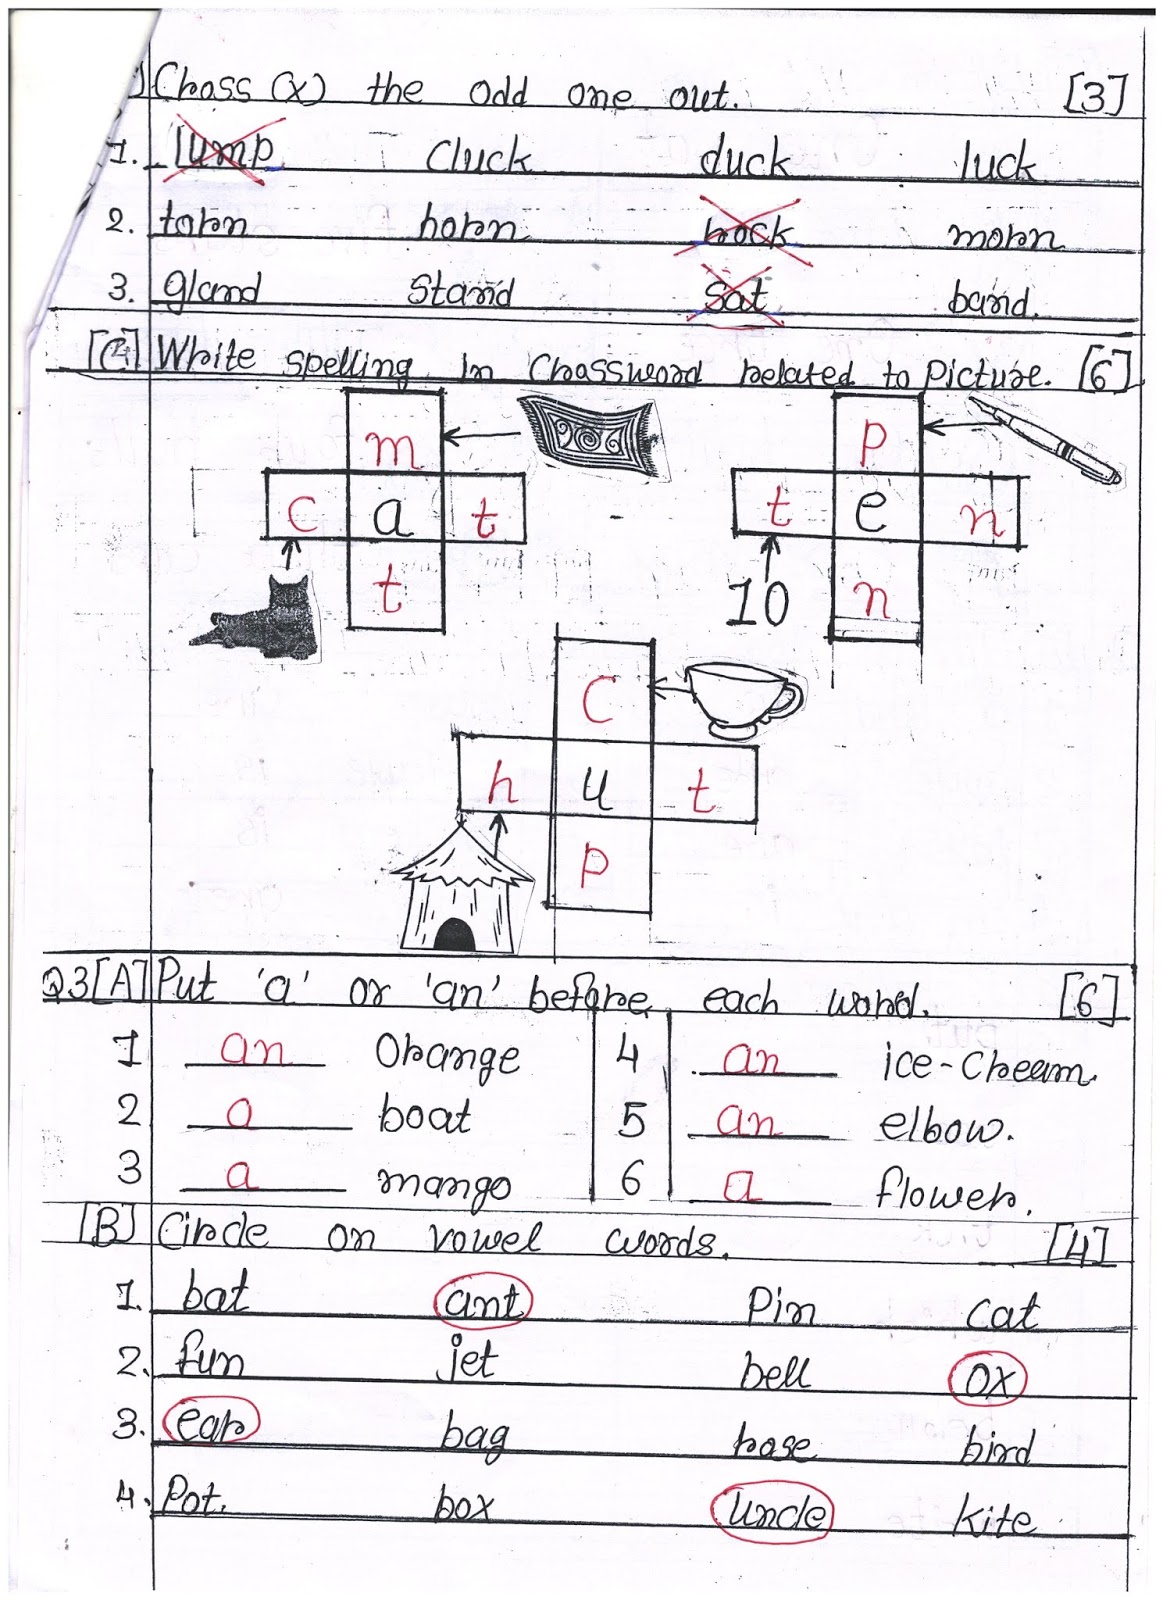 ] Cross (x) the odd one out. [3]
1. lump cluck duck luck
2. torn horn rock morn
3. gland stand sat band.
[C] Write spelling in Crossword related to Picture. [6]
m p
c a t t e n
t 10 n
C
h u t
p
Q3 [A] Put 'a' or 'an' before each word. [6]
1 an Orange 4 an ice-Cream.
2 a boat 5 an elbow.
3 a mango 6 a flower.
[B] Circle on vowel words. [4]
1. bat ant Pin cat
2. fun jet bell ox
3. ear bag rose bird
4. Pot. box Uncle kite